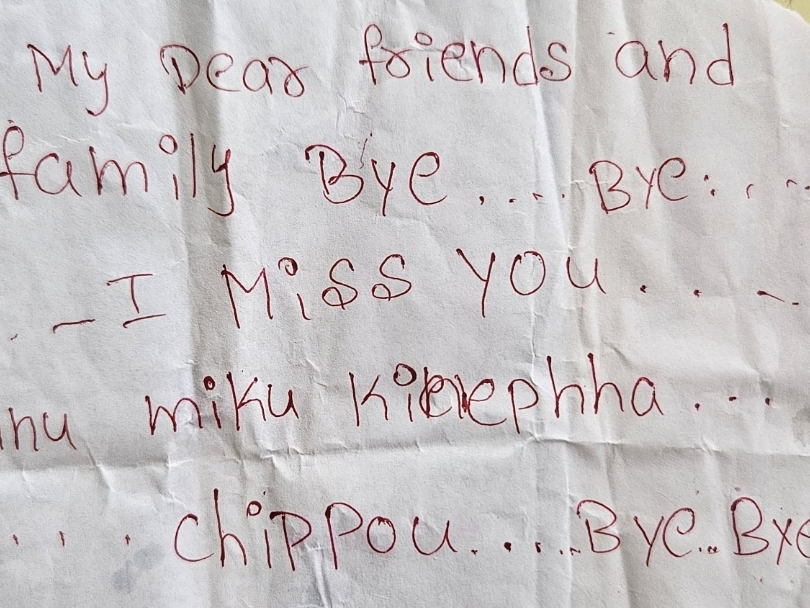 My Dear friends and
family Bye.... Bye....
I Miss you...
miku
.... chippou.....Bye..Bye